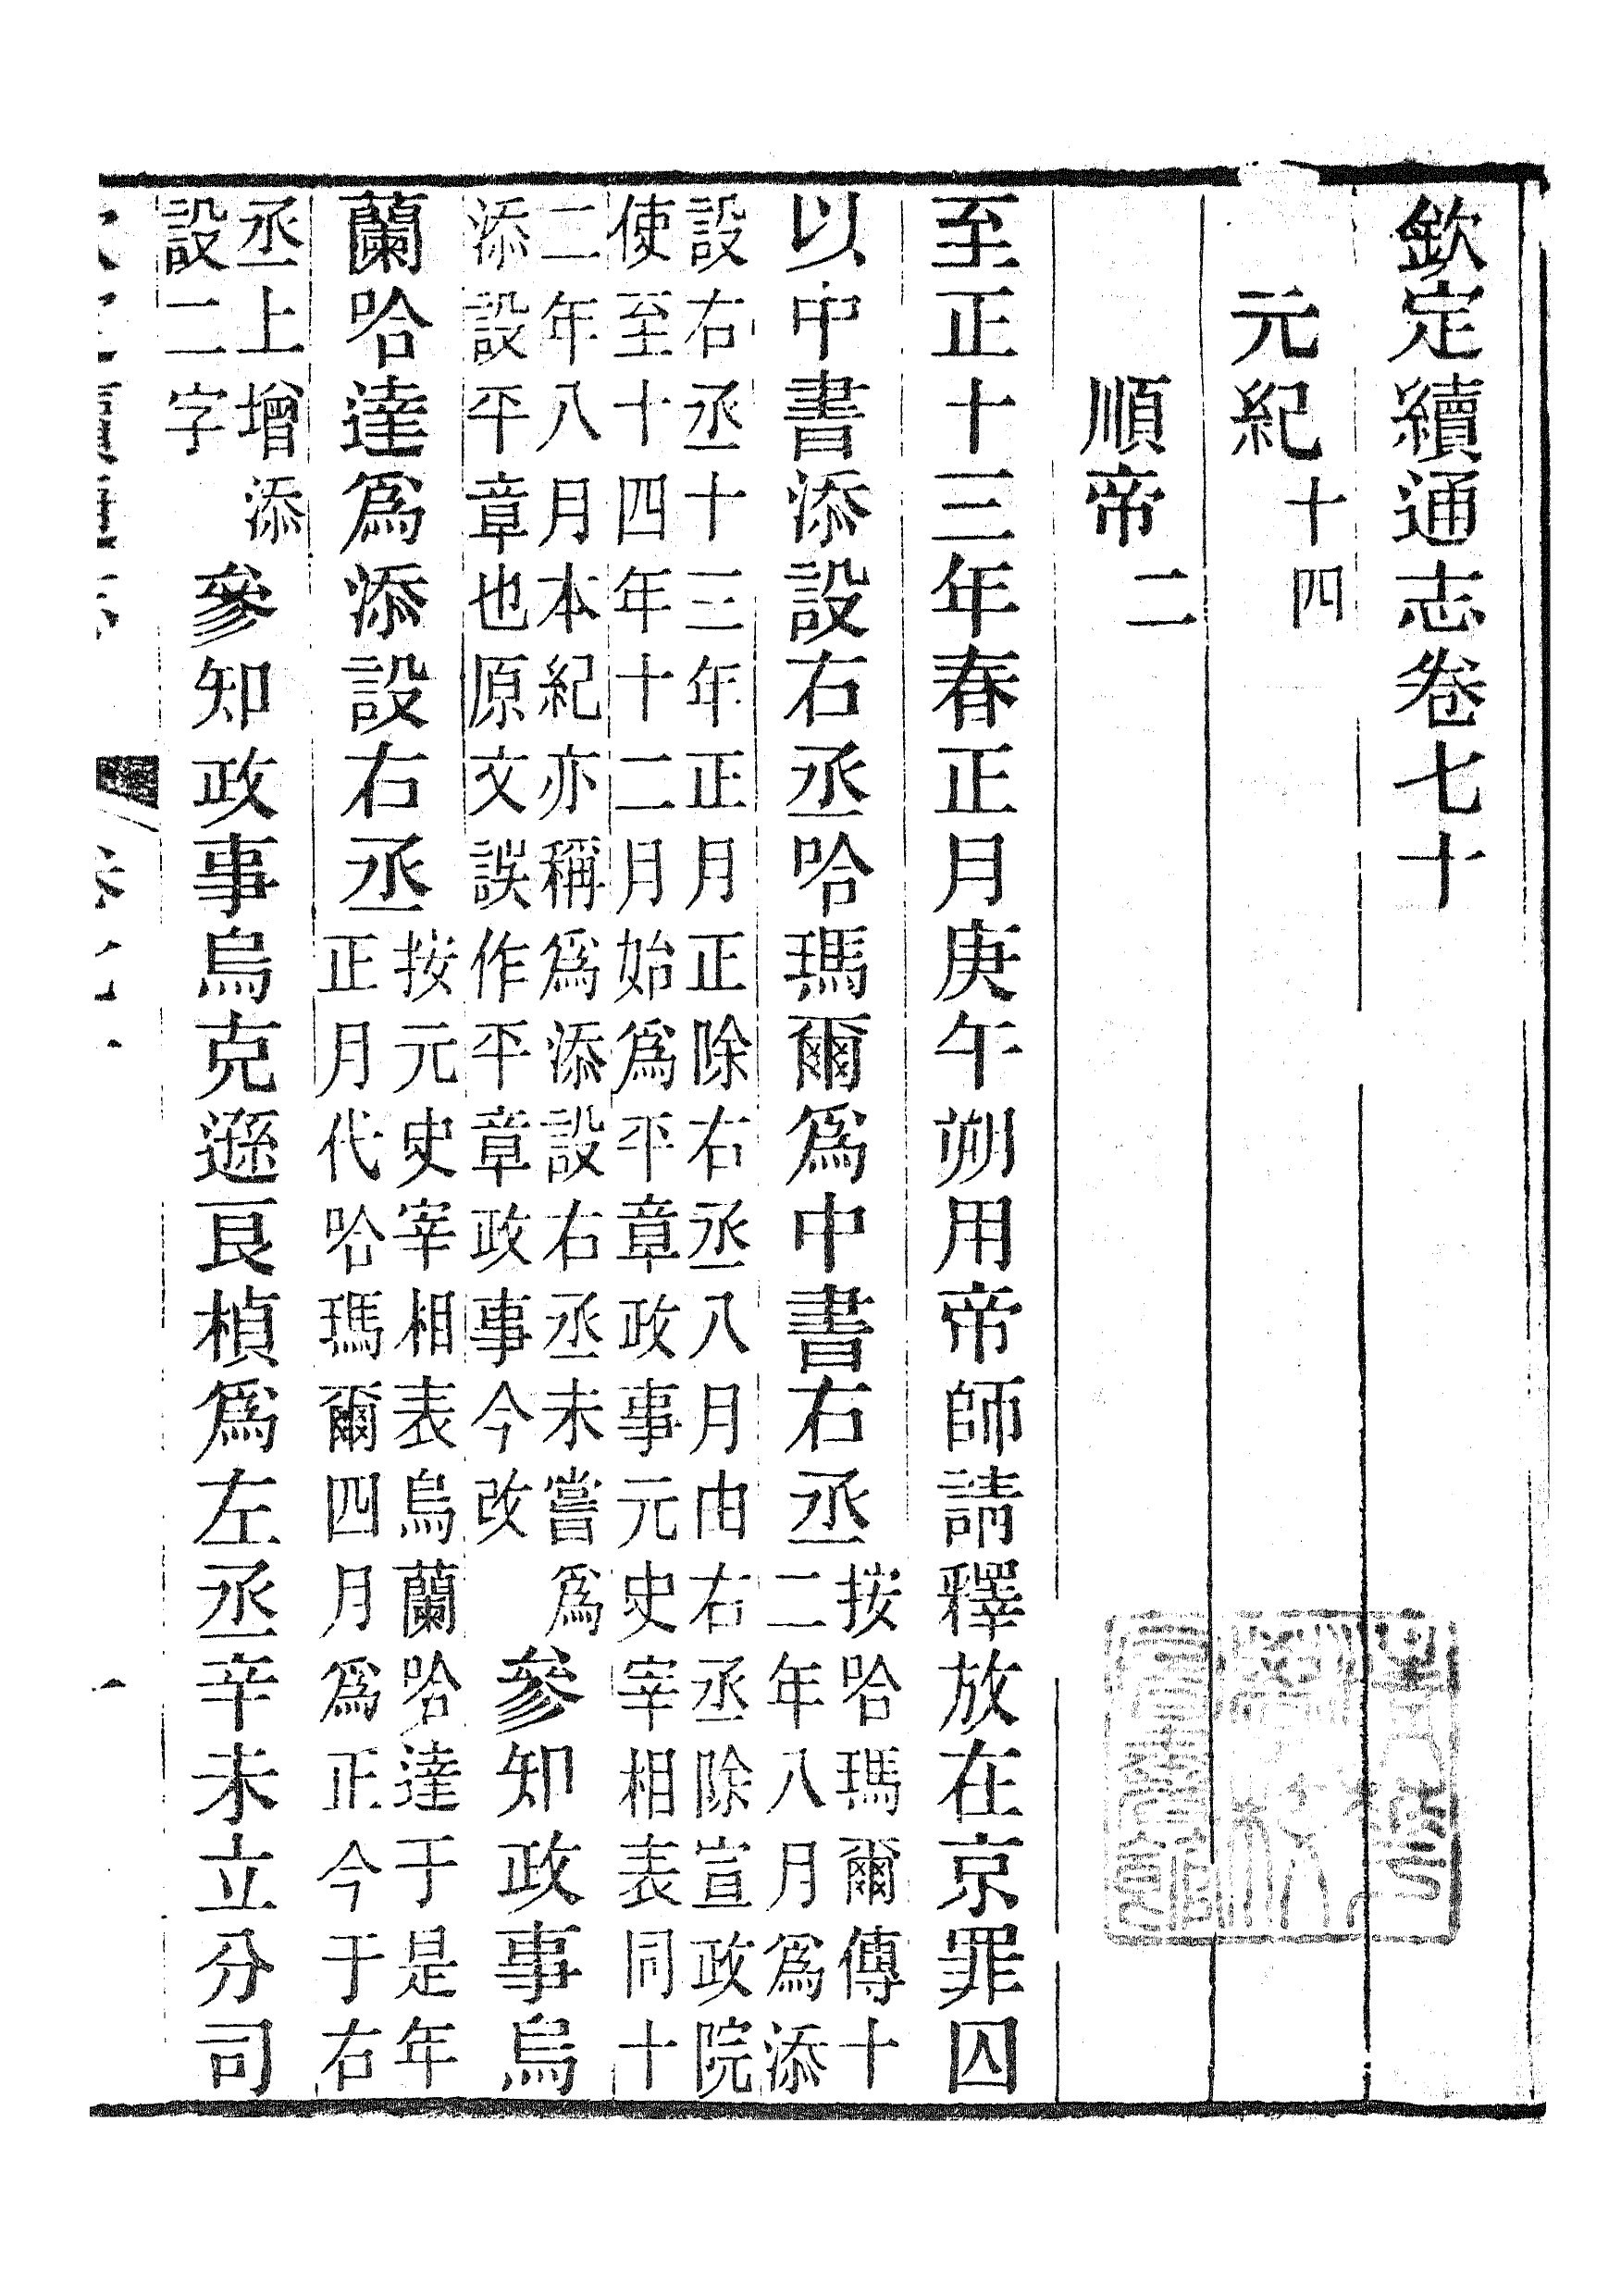 欽定續通志卷七十
元紀十四
順帝二
至正十三年春正月庚午朔用帝師請釋放在京罪囚
以中書添設右丞哈瑪爾爲中書右丞按哈瑪爾傳十二年八月爲添
設右丞十三年正月正除右丞八月由右丞除宣政院使至十四年十二月始爲平章政事元史宰相表同十
二年八月本紀亦稱爲添設右丞未嘗爲添設平章也原文誤作平章政事今改參知政事烏
蘭哈達爲添設右丞按元史宰相表烏蘭哈達于是年正月代哈瑪爾四月爲正今于右
丞上增添設二字參知政事烏克遜良楨爲左丞辛未立分司